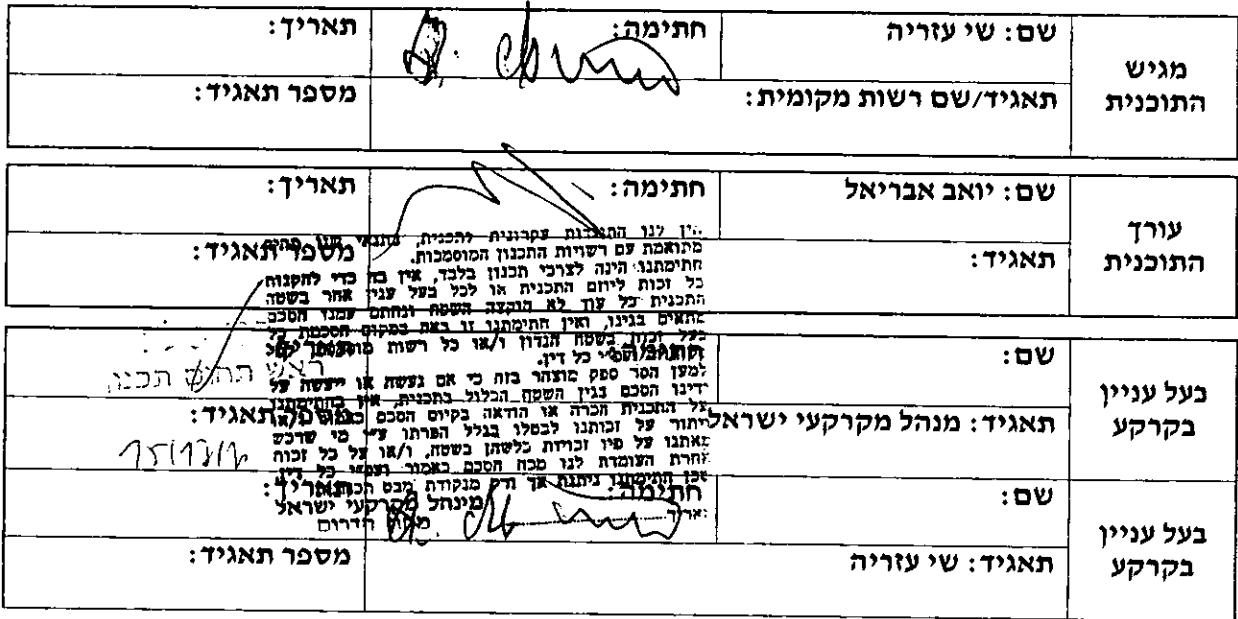 מגיש התוכנית
שם: שי עזריה
חתימה:
תאריך:
תאגיד/שם רשות מקומית:
מספר תאגיד:
עורך התוכנית
שם: יואב אבריאל
חתימה:
תאריך:
תאגיד:
מספר תאגיד:
אין לנו התנגדות עקרונית לתכנית, בתנאי שזו תהיה
מתואמת עם רשויות התכנון המוסמכות.
חתימתנו הינה לצרכי תכנון בלבד, אין בה כדי להקנות
כל זכות ליוזם התכנית או לכל בעל ענין אחר בשטח
התכנית כל עוד לא הוקצה השטח ונחתם עמנו הסכם
מתאים בגינו, ואין חתימתנו זו באה במקום הסכמת כל
בעל זכות בשטח הנדון ו/או כל רשות
כל דין.
למען הסר ספק מוצהר בזה כי אם נעשה או ייעשה על
ידינו הסכם בגין השטח הכלול בתכנית, אין בחתימתנו
על התכנית הכרה או הודאה בקיום הסכם כאמור ו/או
ויתור על זכותנו לבטלו בגלל הפרתו ע"י מי שרכש
מאתנו על פיו זכויות כלשהן בשטח, ו/או על כל זכות
אחרת העומדת לנו מכח הסכם כאמור ועפ"י כל דין,
שכן חתימתנו ניתנת אך ורק מנקודת מבט תכנונית.
תאריך
מינהל מקרקעי ישראל
מחוז הדרום
בעל עניין בקרקע
שם:
חתימה:
תאריך:
תאגיד: מנהל מקרקעי ישראל
מספר תאגיד:
בעל עניין בקרקע
שם:
חתימה:
תאריך:
תאגיד: שי עזריה
מספר תאגיד: